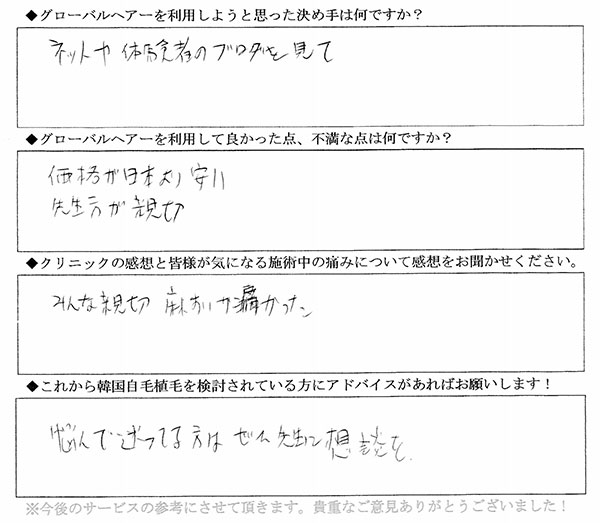 ◆グローバルヘアーを利用しようと思った決め手は何ですか？
ネットや体験者のブログを見て
◆グローバルヘアーを利用して良かった点、不満な点は何ですか？
価格が日本より安い
先生方が親切
◆クリニックの感想と皆様が気になる施術中の痛みについて感想をお聞かせください。
みんな親切 麻酔が痛かった
◆これから韓国自毛植毛を検討されている方にアドバイスがあればお願いします！
悩んで迷ってる方はぜひ先生に想談を
※今後のサービスの参考にさせて頂きます。貴重なご意見ありがとうございました！